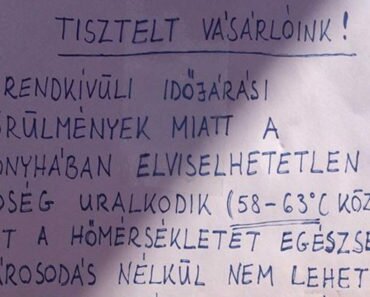 TISZTELT VÁSÁRLÓINK!
RENDKÍVÜLI IDŐJÁRÁSI
ÖRÜLMÉNYEK MIATT A
ONYHÁBAN ELVISELHETETLEN
ŐSÉG URALKODIK (58-63°C KÖZ
T A HŐMÉRSÉKLETET EGÉSZSÉ
ÁROSODÁS NÉLKÜL NEM LEHET